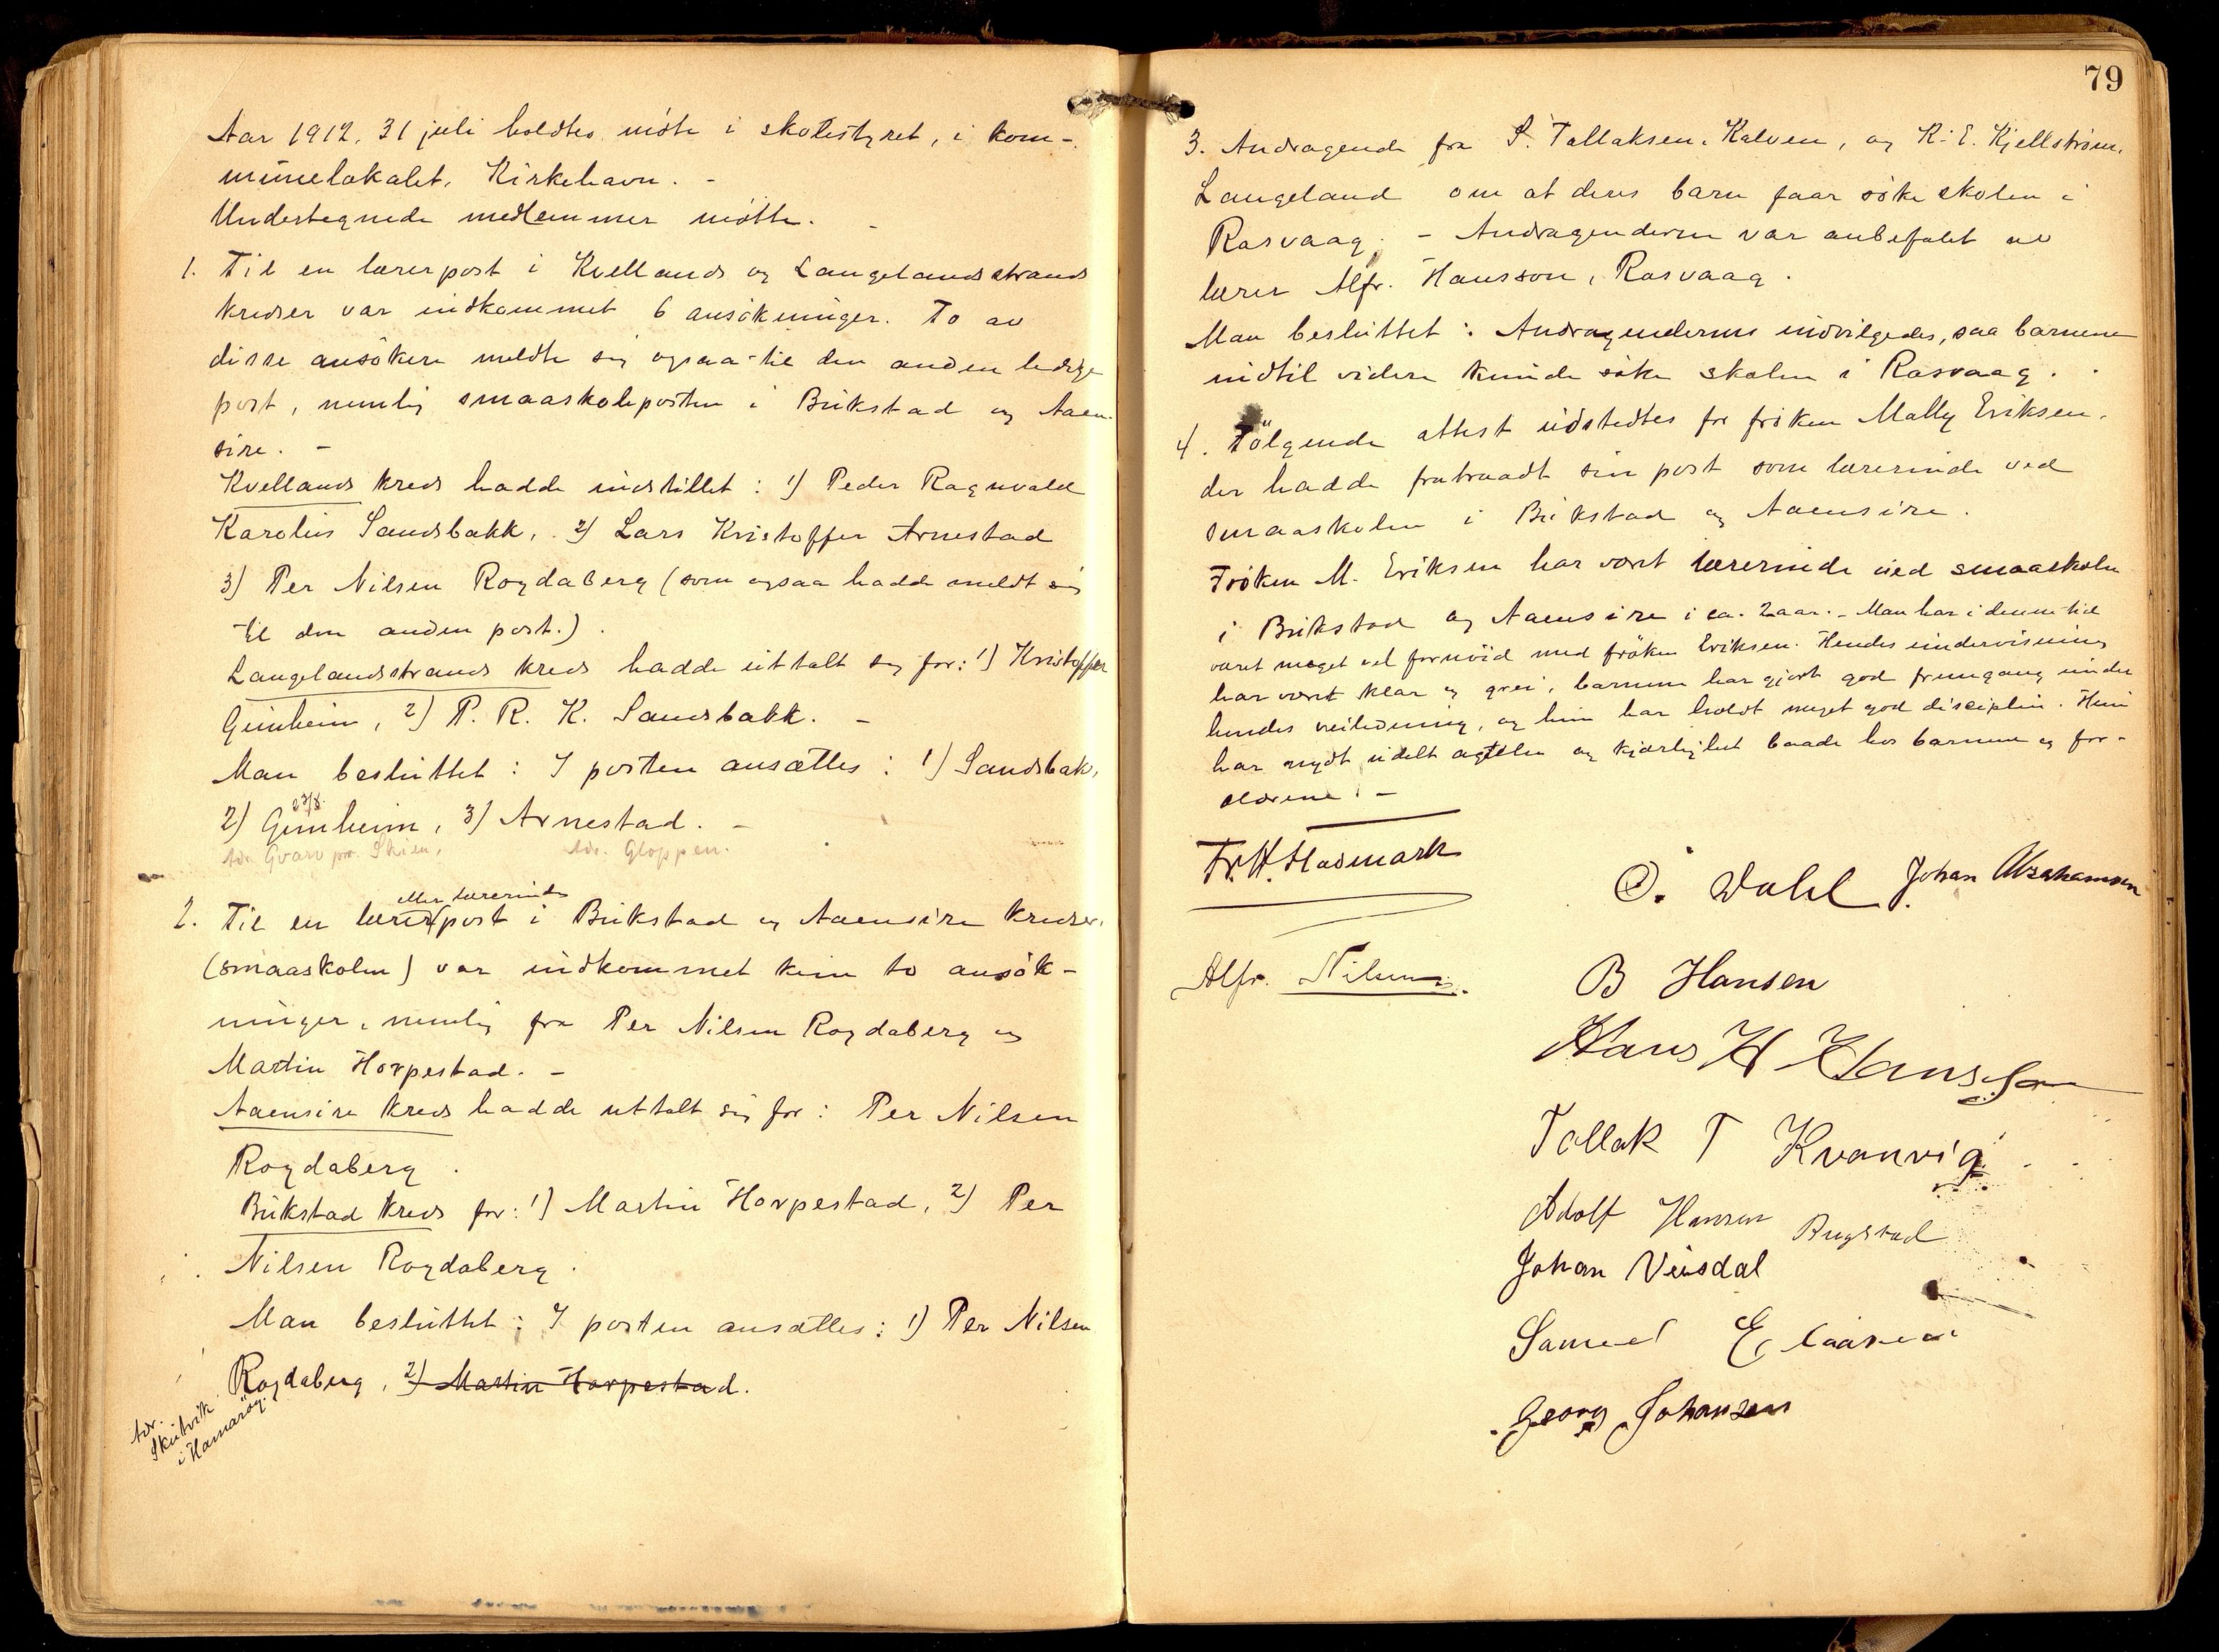 Aar 1912. 31 juli holdtes möte i skolestyret, i kom-
munelokalet, Kirkehavn. -
Undertegnede medlemmer mötte. -
1. Til en lærerpost i Kvellands og Langelandsstrands
kredser var indkommet 6 ansökninger. To av
disse ansökere meldte sig ogsaa til den anden ledige
post, nemlig smaaskoleposten i Bukstad og Aaen-
sire. -
Kvellands kreds hadde indstillet: 1) Peder Ragnvald
Karolius Sandsbakk, 2) Lars Kristoffer Arnestad
3) Per Nilsen Rogdaberg (som ogsaa hadde meldt sig
til den anden post.).
Langelandsstrands kreds hadde uttalt sig for: 1) Kristoffer
Gunheim, 2) P. R. K. Sandsbakk. -
Man besluttet: I posten ansættes: 1) Sandsbak,
23/8.
2) Gunheim, 3) Arnestad. -
Adr. Gvarv pr. Skien, Adr. Gloppen.
eller lærerinde
2. Til en lærer post i Bukstad og Aaensire kredser,
(smaaskolen) var indkommet kun to ansök-
ninger, nemlig fra Per Nilsen Rogdaberg og
Martin Horpestad. -
Aaensire kreds hadde uttalt sig for: Per Nilsen
Rogdaberg.
Bukstad kreds for: 1) Martin Horpestad, 2) Per
Nilsen Rogdaberg.
Man besluttet: I posten ansættes: 1) Per Nilsen
Rogdaberg, 2) Martin Horpestad.
Adr.
Skutvik
i Hamaröy.
79
3. Andragende fra S. Tallaksen, Kalven, og K. E. Kjellström,
Langeland om at deres barn faar söke skolen i
Rasvaag. - Andragenderne var anbefalet av
lærer Alfr. Hansson, Rasvaag.
Man besluttet: Andragenderne indvilgedes, saa barnene
indtil videre kunde söke skolen i Rasvaag.
4. Fölgende attest utstedtes for fröken Mally Eriksen,
der hadde fratraadt sin post som lærerinde ved
smaaskolen i Bukstad og Aaensire.
Fröken M. Eriksen har været lærerinde ved smaaskolen
i Bukstad og Aaensire i ca. 2 aar. - Man har i denne tid
været meget vel fornöid med fröken Eriksen. Hendes undervisning
har været klar og grei, barnene har gjort god fremgang under
hendes veiledning, og hun har holdt meget god disciplin. Hun
har nydt udelt agtelse og kjærlighet baade hos barnene og for-
ældrene. -
Fr. W. Hasmark
O. Dahl Johan Abrahamsen
Alfr. Nilsen.
B Hansen
Hans H Hansen
Tallak T Kvanvig
Adolf Hansen Bugstad
Johan Veisdal
Samuel Eliassen
Georg Johansen